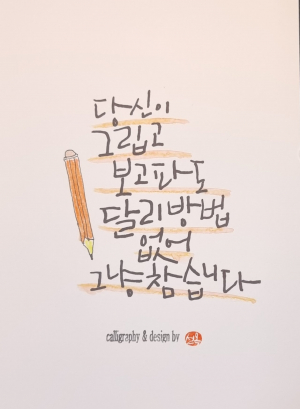 당신이
그립고
보고파도
달리방법
없어
그냥참습니다
calligraphy & design by